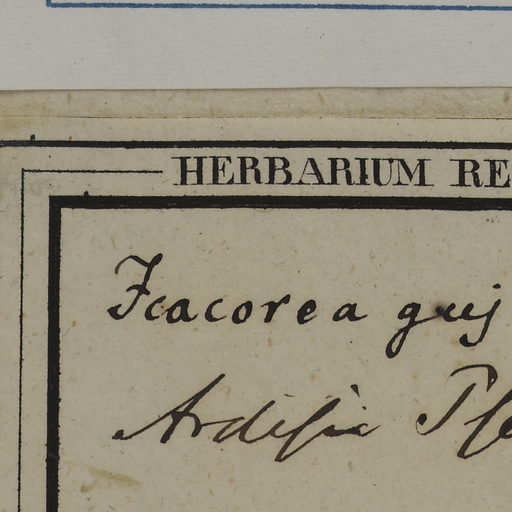 HERBARIUM RE
Icacorea guj
Ardisia